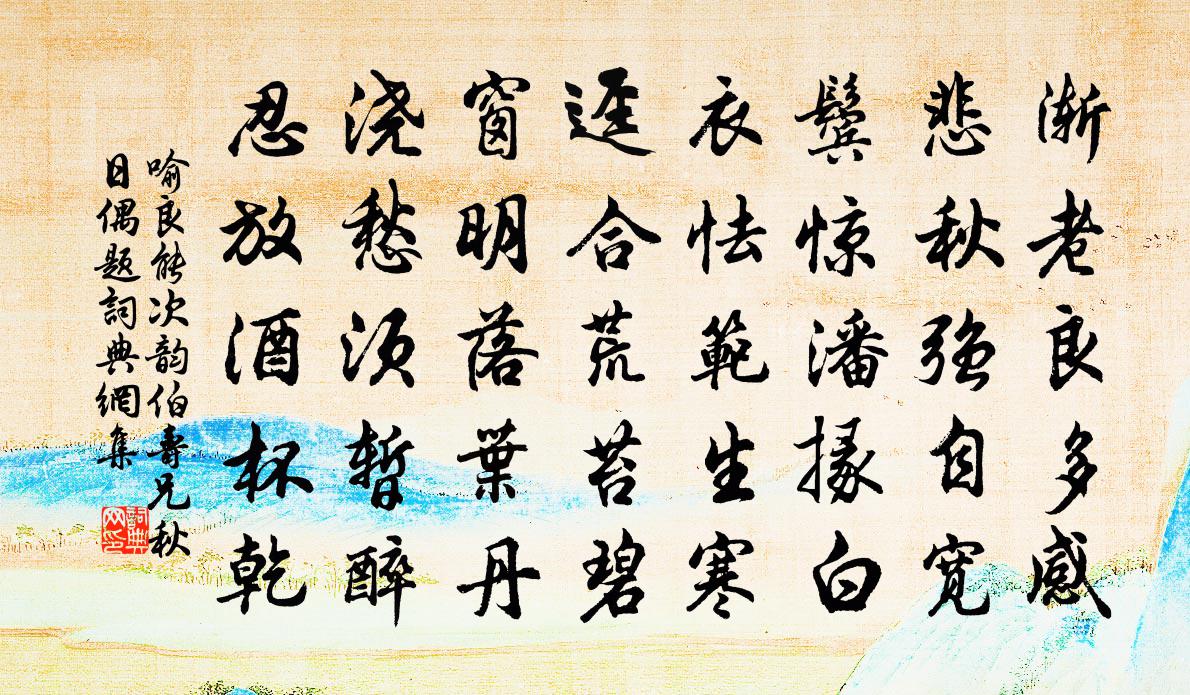 渐老良多感
悲秋强自宽
鬓惊潘掾白
衣怯範生寒
迳合荒苔碧
窗明落葉丹
浇愁须暂醉
忍放酒杯乾
喻良能次韵伯壽兄秋
日偶题詞典網集